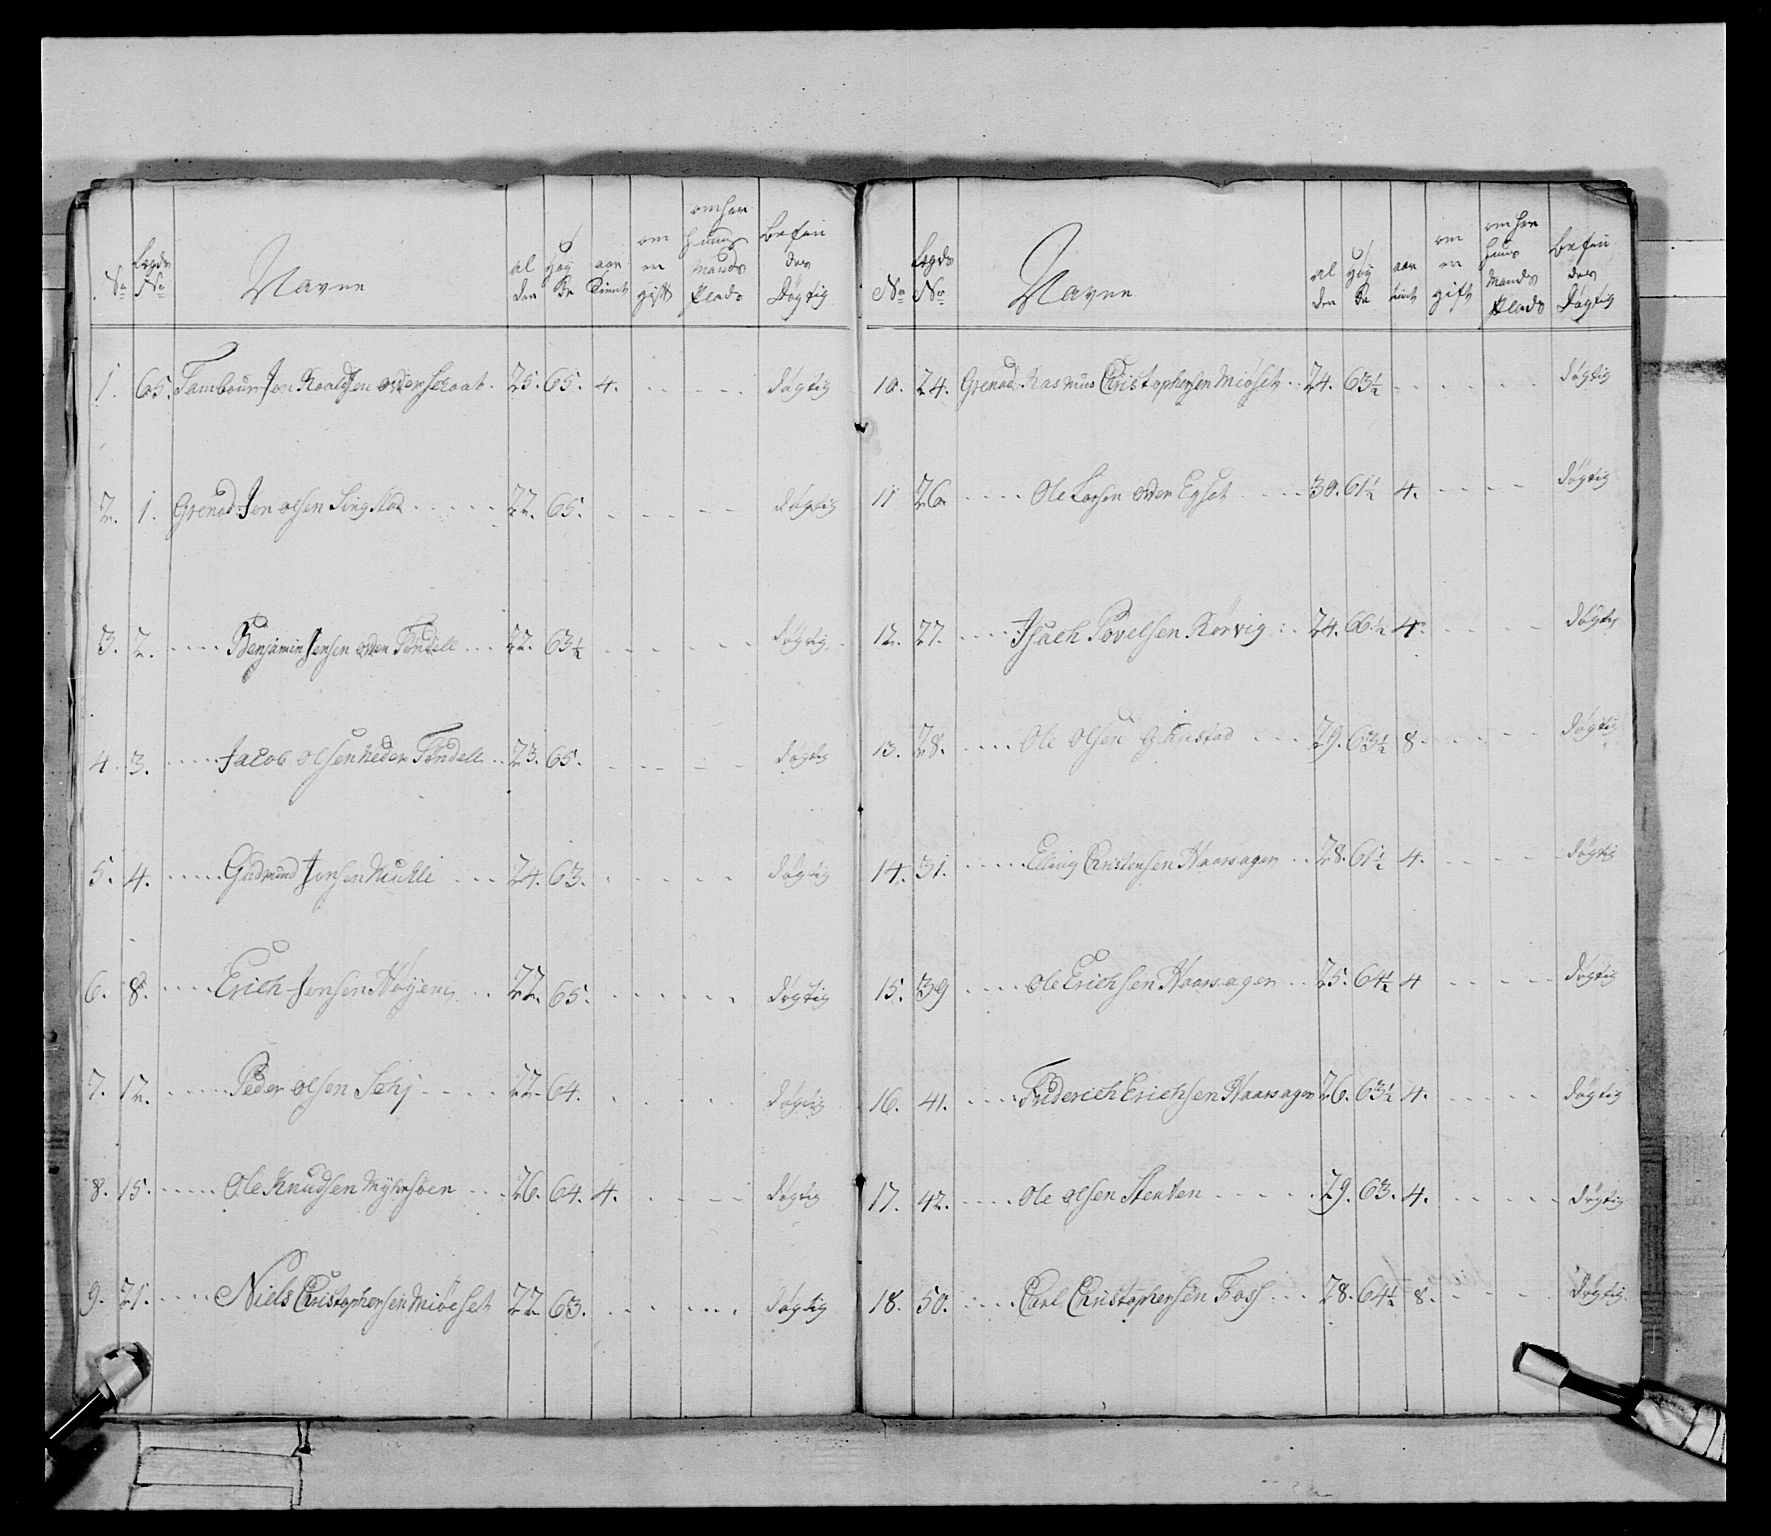 No Legds No Navne alder Høyde aar tient om er gift om har huusmands Plads befindes Døgtig
1. 65. Tambour Jon Roaldsen 25. 65. 4. - - - - døgtig
2. 1. Grenad Jon olsen Singstad - - - - 22. 65. - - - - døgtig
3. 2. - - - - Benjamin Jensen Tøndell - - - 22. 63½ - - - - døgtig
4. 3. - - - - Jacob olsen neder Tøndell - - 23. 65. - - - - døgtig
5. 4. - - - - Gudmund Jonsen - - - 24. 63. - - - - døgtig
6. 8. - - - - Erich Jonsen Høyem - - 22. 65. - - - - døgtig
7. 12. - - - - Peder olsen - - - - 22. 64. - - - - døgtig
8. 15. - - - - Ole Knudsen Myhrsøen - - - 26. 64. 4. - - - - døgtig
9. 21. - - - - Niels Christophersen Miöeset 22. 63. - - - - døgtig
No Legds No Navne alder Høyde aar tient om er gift om har huus Mands Plads befindes Døgtig
10. 24. Grenad: Rasmus Christophersen Miöset - - 24. 63½ - - - - døgtig
11 26. - - - - Ole Larsen Egset - - - 30. 61½ 4. - - - - døgtig
12. 27. - - - - Isach Povelsen Rörvig - - 24. 66½ 4. - - - - døgtig
13. 28. - - - - Ole Olsen - - - 29. 63½ 8. - - - - døgtig
14. 31. - - - - Elling Christensen Haarsager - - 28. 61½ 4. - - - - døgtig
15. 39 - - - - Ole Erichsen Haarsager - - 25. 64½ 4 - - - - døgtig
16. 41. - - - - Friderich Erichsen Haarsager 26. 63½ 4. - - - - døgtig
17. 42. - - - - Ole olsen Stenten - - - - 29. 63. 4. - - - - døgtig
18. 50. - - - - Carl Christophersen Foss - - - 28. 64½ 8. - - - døgtig